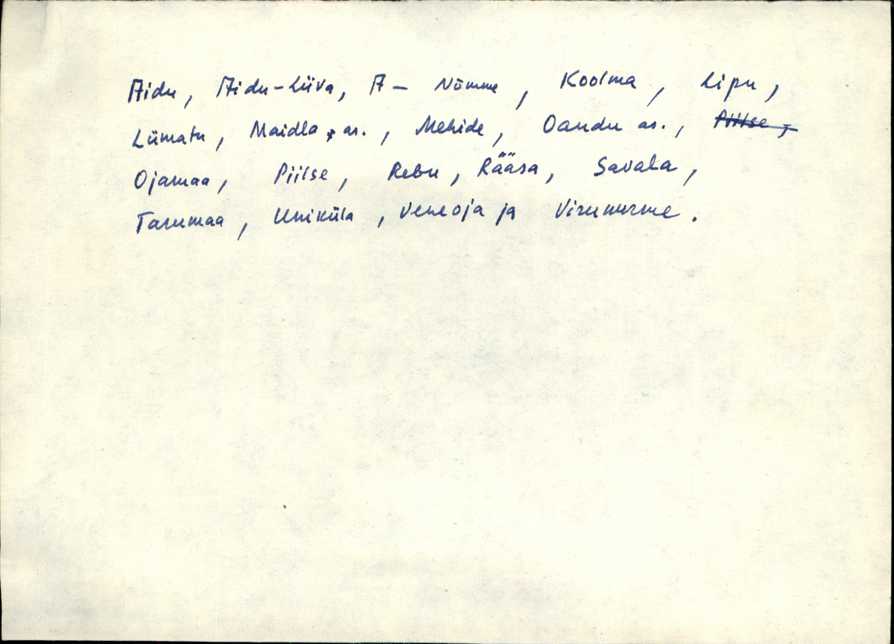 Aidu, Aidu-Liiva, A- Nõmme, Koolma, Lipu,
Lümatu, Maidla, as., Mehide, Oandu as., Piilse,
Ojamaa, Piilse, Rebu, Rääsa, Savala,
Tarumaa, Uniküla, Veneoja ja Virunurme.